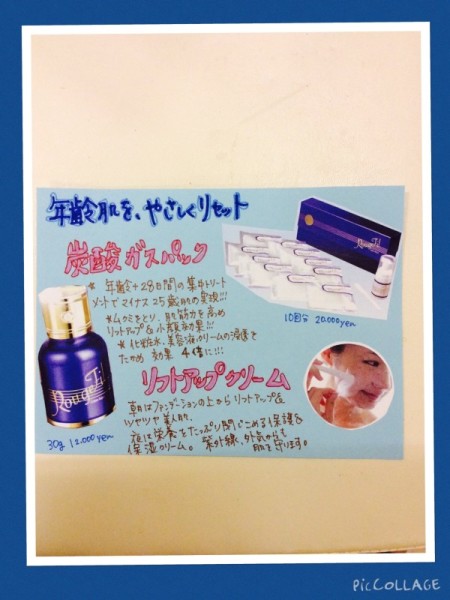 年齢肌を、やさしくリセット
炭酸ガスパック
* 年齢+28日間の集中トリート
メントでマイナス25歳肌の実現!!!
*ムクミをとり、肌筋力を高め
リフトアップ&小顔効果!!!
* 化粧水、美容液、クリームの浸透を
たかめ 効果 4倍に!!!
RougeTil
10回分 20.000yen
リフトアップクリーム
朝はファンデーションの上からリフトアップ&
ツヤツヤ美人肌。
夜は栄養をたっぷり閉じこめる保護&
保湿クリーム。紫外線、外気からも
肌を守ります。
30g 12.000yen
PiC COLLAGE